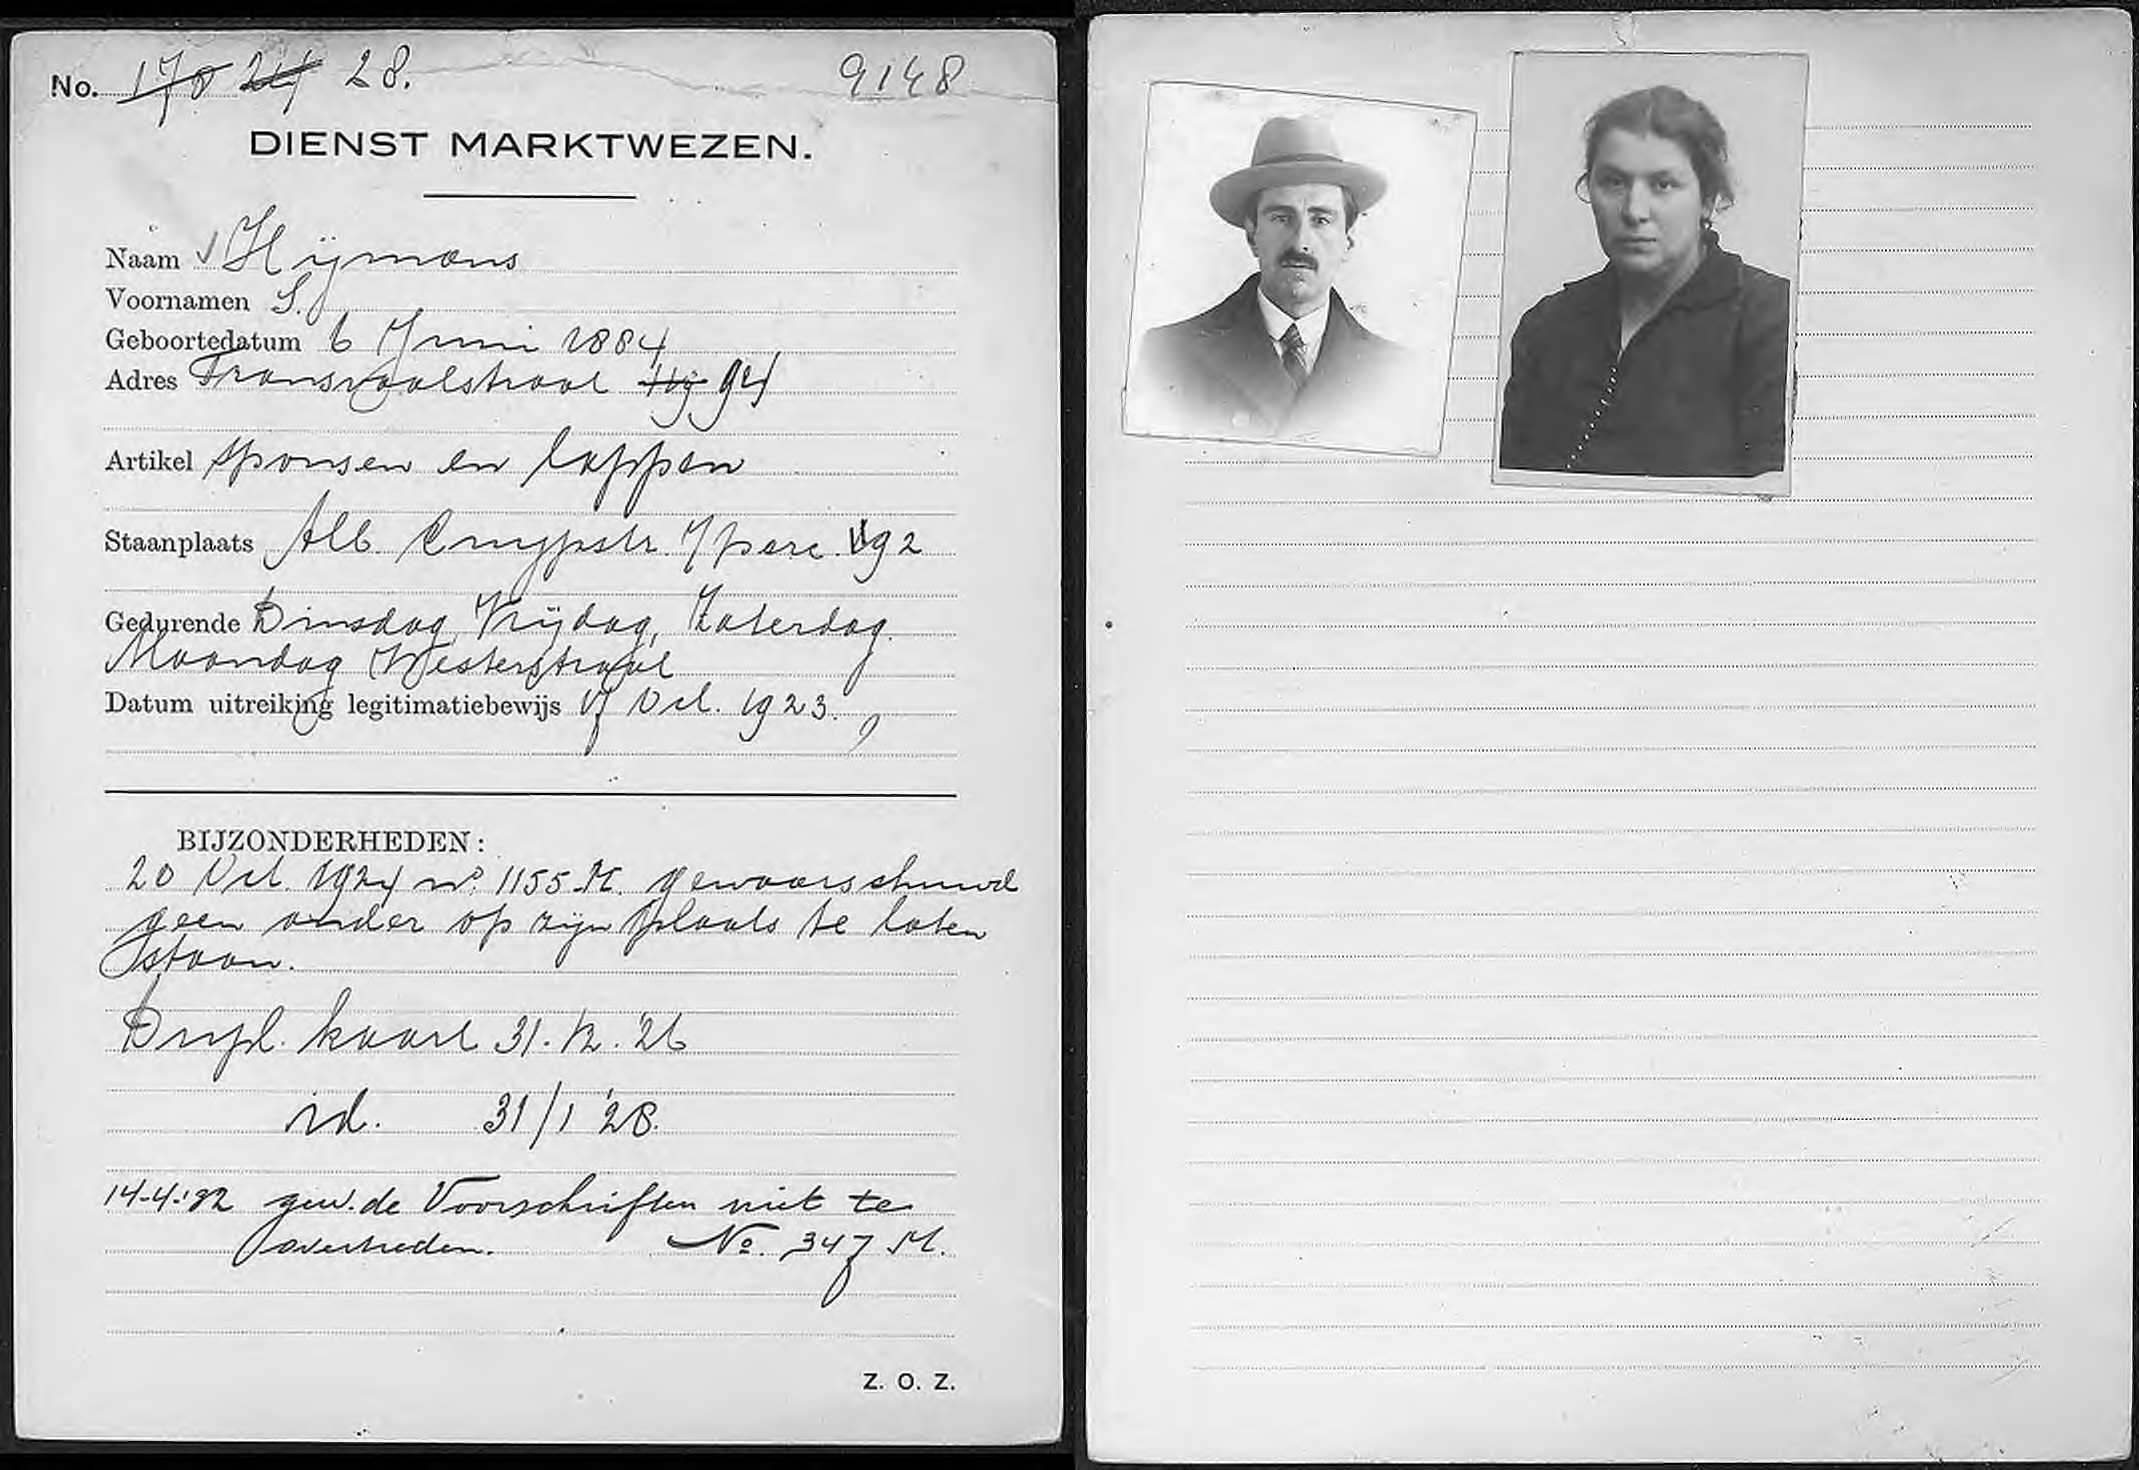 No. 170 24 28. 9148
DIENST MARKTWEZEN.
Naam Hijmans
Voornamen S.
Geboortedatum 6 Juni 1884
Adres Transvaalstraat 94
Artikel sponsen en lappen
Staanplaats Alb Cuypstr. perc. 192
Gedurende Dinsdag, Vrijdag, Zaterdag.
Maandag Westerstraat
Datum uitreiking legitimatiebewijs 17 Oct. 1923.
BIJZONDERHEDEN:
20 Oct. 1924 no. 1155 M. gewaarschuwd
geen ander op zijn plaats te laten
staan.
Dupl. kaart 31.12.'26
id. 31/1 '28.
14-4-'32 gew. de Voorschriften niet te
overtreden. No. 347 M.
Z. O. Z.